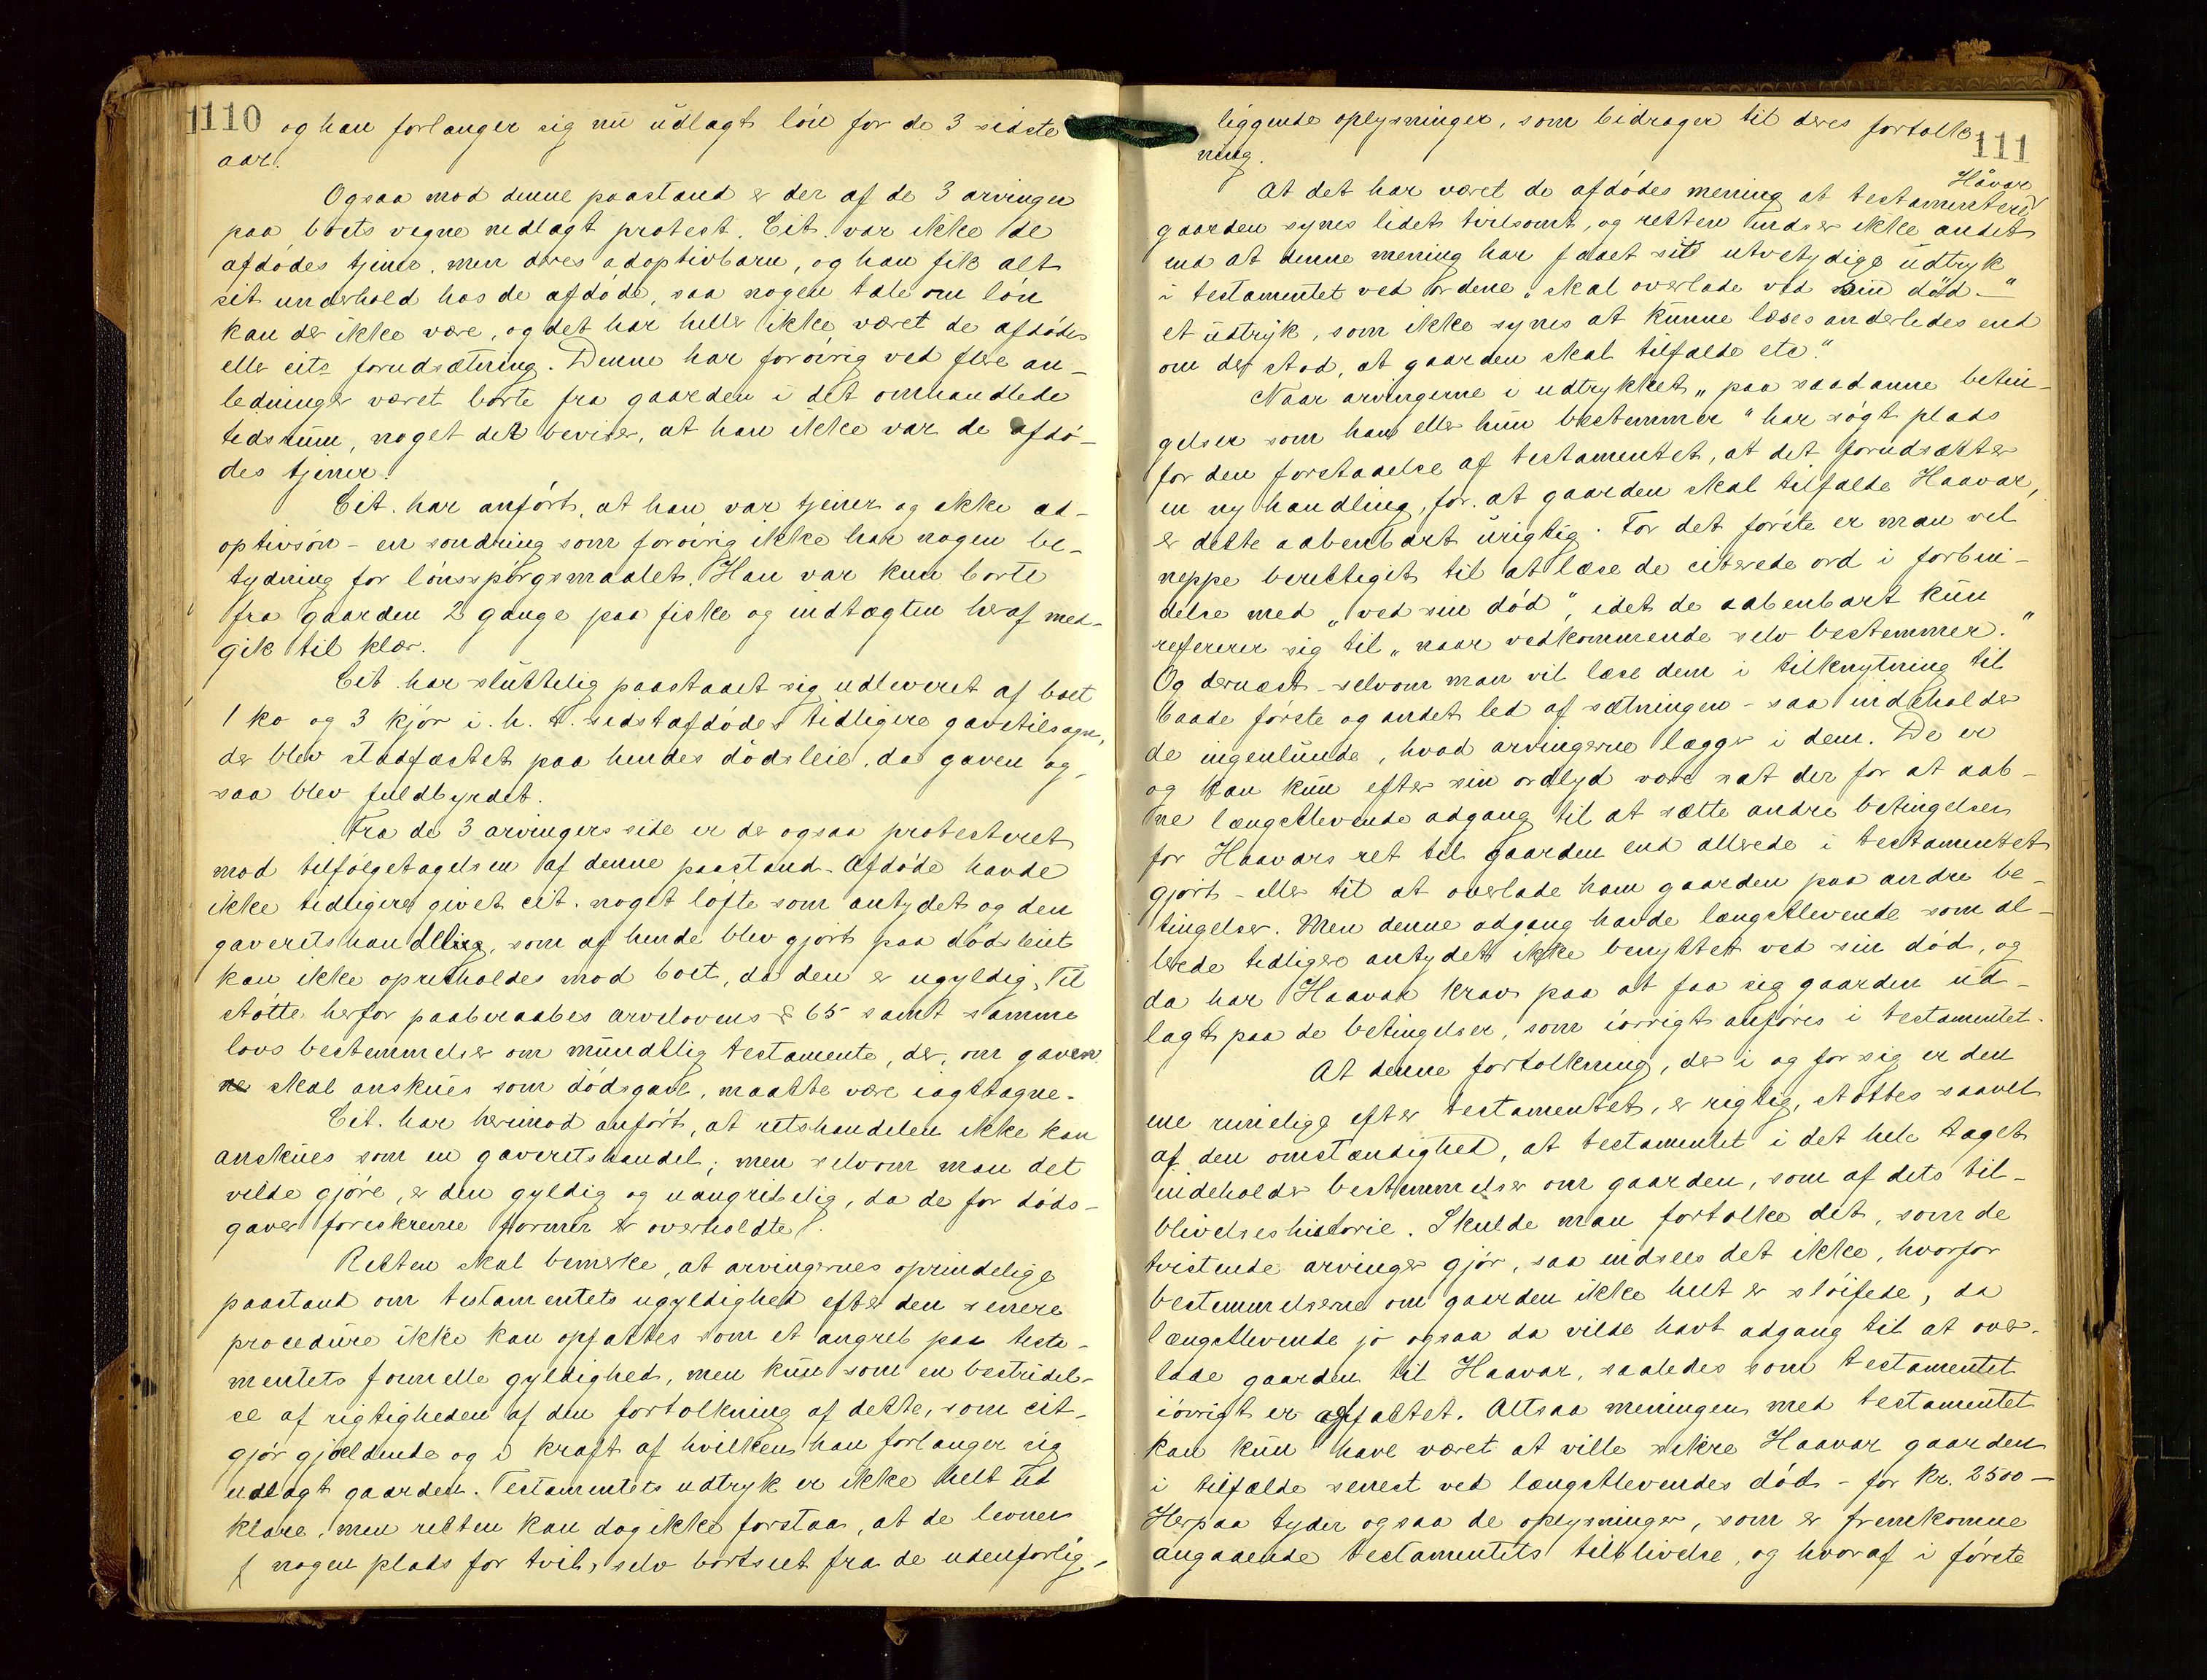 110
og han forlanger sig nu udlagt løn for de 3 sidste
aar.
Ogsaa mod denne paastand er der af de 3 arvinger
paa boets vegne nedlagt protest. Cit. var ikke de
afdødes tjener, men deres adoptivbarn, og han fik alt
sit underhold hos de afdøde, saa nogen tale om løn
kan der ikke være, og det har heller ikke været de afdødes
eller cits forudsætning. Denne har forøvrig ved flere an-
ledninger været borte fra gaarden i det omhandlede
tidsrum, noget der beviser, at han ikke var de afdø-
des tjener.
Cit. har anført, at han var tjener og ikke ad-
optivsøn - en sondring som forøvrig ikke har nogen be-
tydning for lønsspørgsmaalet. Han var kun borte
fra gaarden 2 gange paa fiske og indtægten heraf med-
gik til klær.
Cit. har sluttelig paastaaet sig udleveret af boet
1 ko og 3 kjør i. h. t. sidstafdødes tidligere gavetilsagn,
der blev stadfæstet paa hendes dødsleie, da gaven og-
saa blev fuldbyrdet.
Fra de 3 arvingers side er der ogsaa protesteret
mod tilfølgetagelsen af denne paastand. Afdøde havde
ikke tidligere givet cit. noget løfte som antydet og den
gaveretshandling, som af hende blev gjort paa dødsleiet
kan ikke opretholdes mod boet, da den er ugyldig. Til
støtte herfor paaberaabes arvelovens § 65 samt samme
lovs bestemmelser om mundtlig testamente, der, om gaven
skal anskues som dødsgave, maatte være iagttagne.
Cit. har herimod anført, at retshandelen ikke kan
anskues som en gaveretshandel; men selvom man det
vilde gjøre, er den gyldig og uangribelig, da de for døds-
gaver foreskrevne former er overholdte.
Retten skal bemerke, at arvingernes oprindelige
paastand om testamentets ugyldighed efter den senere
procedure ikke kan opfattes som et angreb paa testa-
mentets formelle gyldighed, men kun som en bestridel-
se af rigtigheden af den fortolkning af dette, som cit.
gjør gjældende og i kraft af hvilken han forlanger sig
udlagt gaarden. Testamentets udtryk er ikke helt ud
klare, men retten kan dog ikke forstaa, at de levner
nogen plads for tvil, selv bortseet fra de udenforlig-
111
liggende oplysninger, som bidrager til deres fortolk-
ning.
At det har været de afdødes mening at testamentere Håvar
gaarden synes lidet tvilsomt, og retten indser ikke andet
end at denne mening har faaet sit utvetydige udtryk
i testamentet ved ordene "skal overlade ved sin død -"
et udtryk, som ikke synes at kunne læses anderledes end
om der stod, at gaarden skal tilfalde etc."
Naar arvingerne i udtrykket "paa saadanne betin-
gelser som han eller hun bestemmer" har søgt plads
for den forstaaelse af testamentet, at det forudsætter
en ny handling, for at gaarden skal tilfalde Haavar,
er dette aabenbart urigtig. For det første er man vel
neppe berettiget til at læse de citerede ord i forbin-
delse med "ved sin død", idet de aabenbart kun
refererer sig til "naar vedkommende selv bestemmer."
Og dernæst - selvom man vil læse dem i tilknytning til
baade første og andet led af sætningen - saa indeholder
de ingenlunde, hvad arvingerne lægger i dem. De er
og kan kun efter sin ordlyd være sat der for at aab-
ne længstlevende adgang til at sætte andre betingelser
for Haavars ret til gaarden end allerede i testamentet
gjort - eller til at overlade ham gaarden paa andre be-
tingelser. Men denne adgang havde længstlevende som al-
lerede tidligere antydet ikke benyttet ved sin død, og
da har Haavar krav paa at faa sig gaarden ud-
lagt paa de betingelser, som iøvrigt anføres i testamentet.
At denne fortolkning, der i og for sig er den
ene rimelige efter testamentet, er rigtig, støttes saavel
af den omstændighed, at testamentet i det hele taget
indeholder bestemmelser om gaarden, som af dets til-
blivelseshistorie. Skulde man fortolke det, som de
tvistende arvinger gjør, saa indsees det ikke, hvorfor
bestemmelserne om gaarden ikke helt er sløifede, da
længstlevende jo ogsaa da vilde havt adgang til at over-
lade gaarden til Haavar, saaledes som testamentet
iøvrigt er affattet. Altsaa meningen med testamentet
kan kun have været at ville sikre Haavar gaarden
i tilfælde senest ved længstlevendes død - for kr. 2500 -
Herpaa tyder ogsaa de oplysninger, som er fremkomne
angaaende testamentets tilblivelse, og hvoraf i første